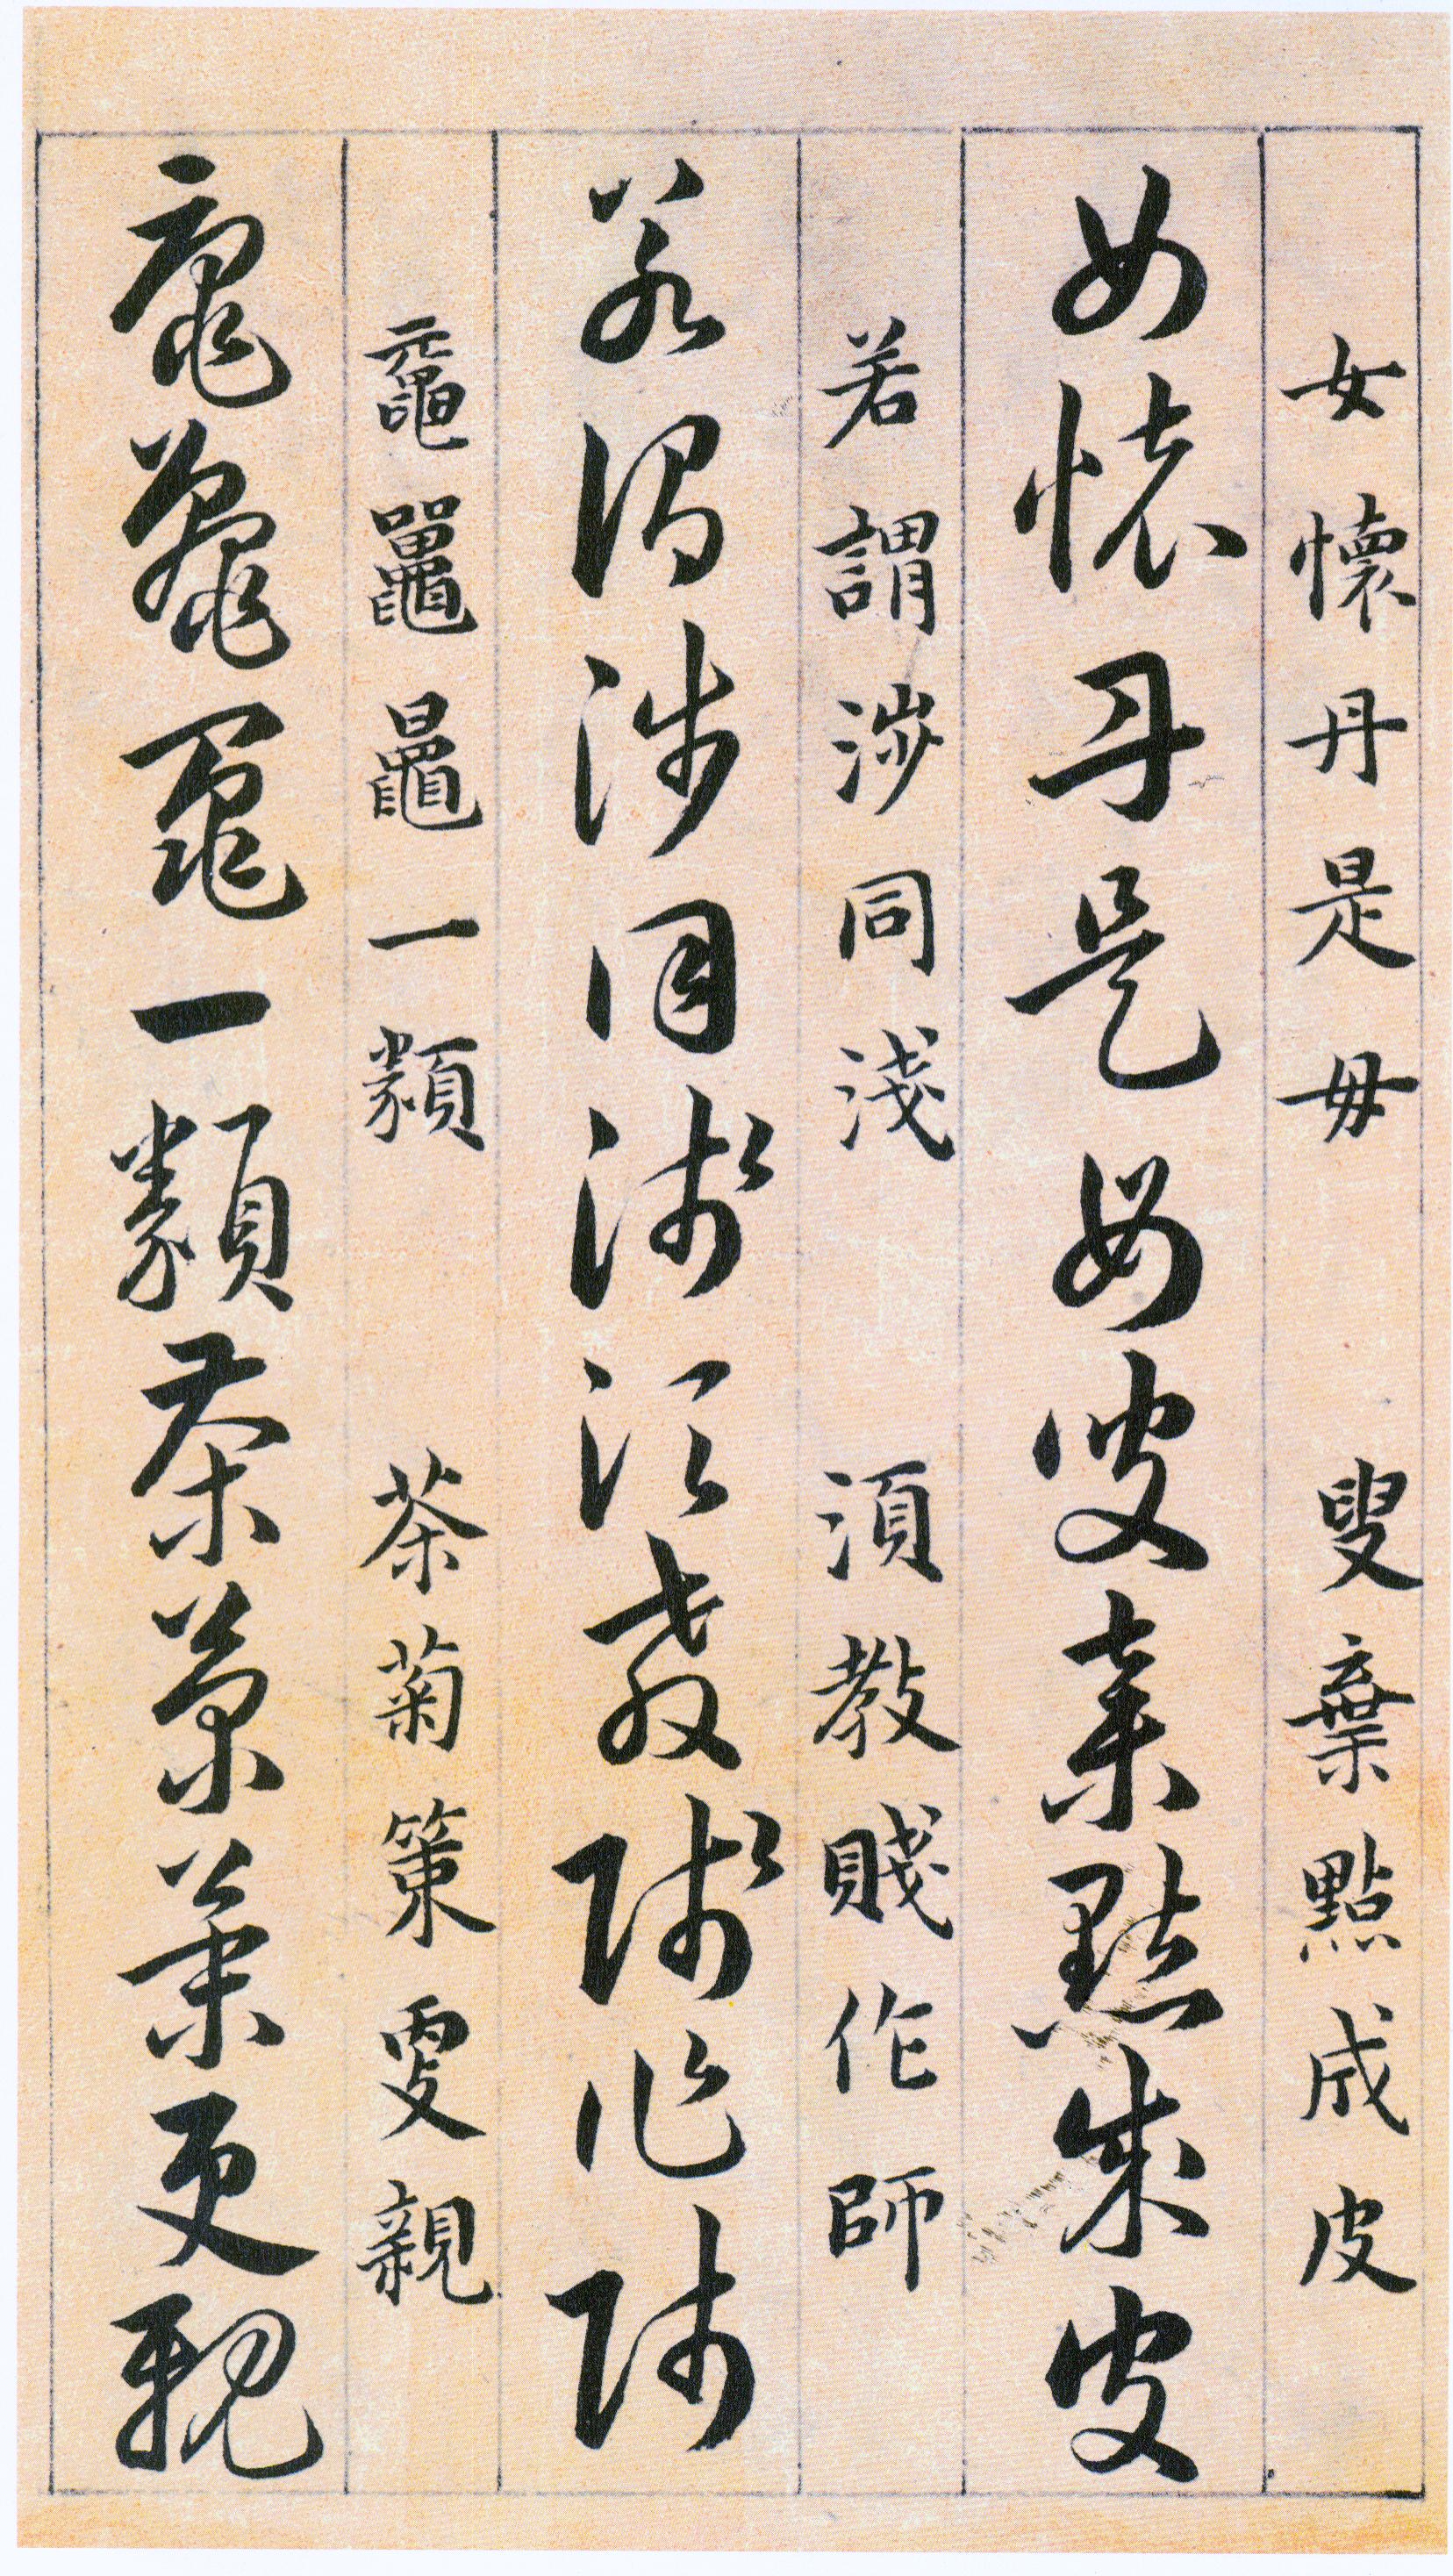 女懷丹是毋　叟棄點成皮
女懷丹是毋叟棄點成皮
若謂涉同淺　須教賤作師
若謂涉同淺須教賤作師
黿鼉鼂一類　茶菊策更親
黿鼉鼂一類茶菊策更親